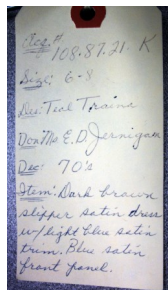 Acc.# 108.87.21. K
Size: 6-8
Des: Teal Traina
Don: Ms E. D. Jernigan
Dec: 70's
Item: Dark brown
slipper satin dress
w/ light blue satin
trim. Blue satin
front panel.